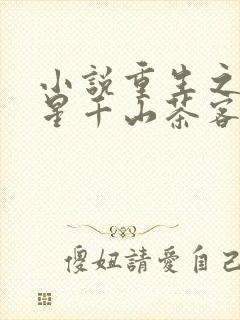 小說重生之
星千山茶客
傻妞請愛自己